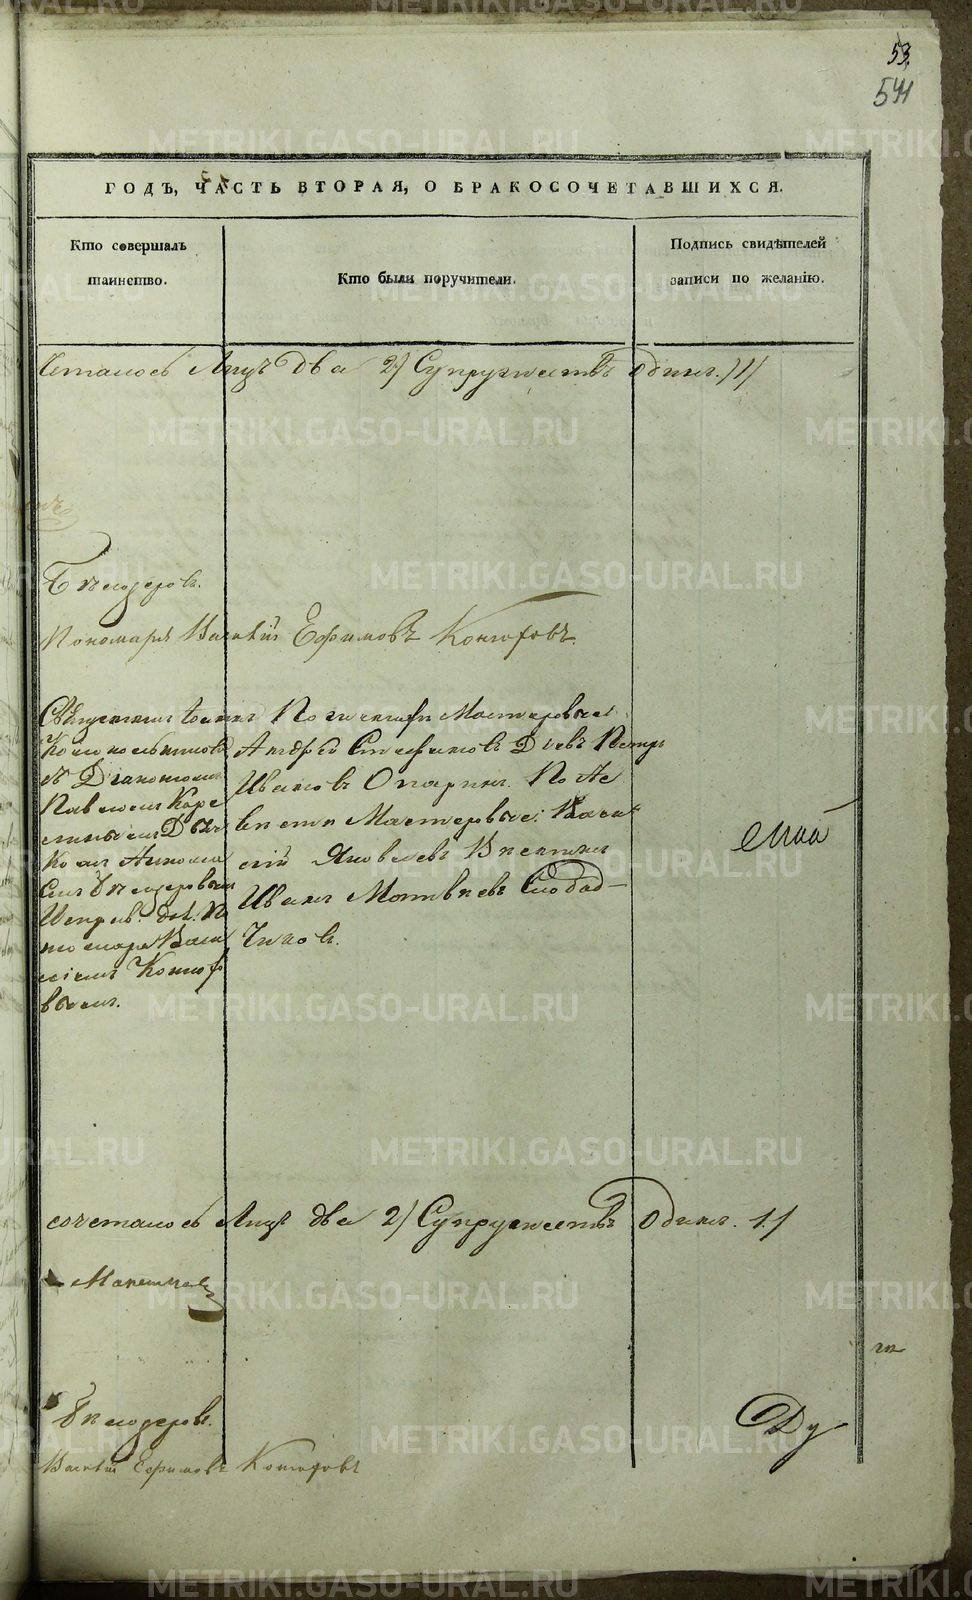 53.
541
ГОДЪ, ЧАСТЬ ВТОРАЯ, О БРАКОСОЧЕТАВШИХСЯ.
Кто совершалъ таинство.
Кто были поручители.
Подпись свидѣтелей записи по желанію.
четалось Лицъ два 2/ Супружествъ Одинъ. /1/
Бѣлозеровъ.
Пономарь Василій Ефимовъ Конюховъ.
Священникъ
Діакономъ
Павломъ Каре
линымъ Дьяч
комъ
Бѣлозеровымъ
номаремъ Васи
ліемъ Конюхо
вымъ.
По женихѣ Мастеровые
Андрей Стефановъ Петръ
Ивановъ Опаринъ. По не
вѣстѣ Мастеровые: Васи
лій Яковлевъ
Иванъ Матвѣевъ Слобод
чиковъ.
Май
сочеталось Лицъ два 2/ Супружествъ Одинъ. 1./
Бѣлозеровъ.
Василій Ефимовъ Конюховъ
METRIKI.GASO-URAL.RU